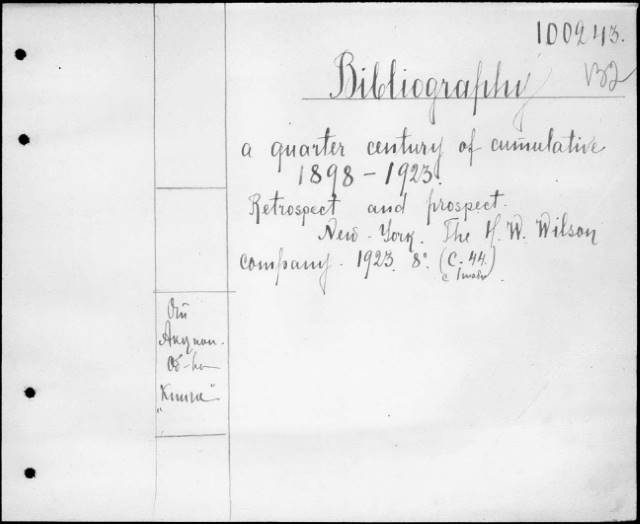 100243.
Bibliography
a quarter century of cumulative
1898 - 1923.
Retrospect and prospect.
New-York. The H. W. Wilson
company. 1923. 8°. (C. 44.)
"Книга"